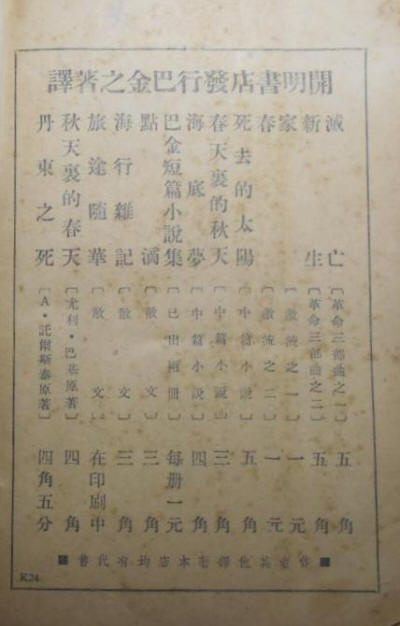 開明書店發行巴金之著譯
滅亡〔革命三部曲之一〕五角
新生〔革命三部曲之二〕五角
家〔激流之一〕一元
春〔激流之二〕一元
死去的太陽〔中篇小說〕五角
春天裏的秋天〔中篇小說〕三角
海底夢〔中篇小說〕四角
巴金短篇小說集〔已出兩册〕每册一元
點滴〔散文〕三角
海行雜記〔散文〕三角
旅途隨筆〔散文〕在印刷中
秋天裏的春天〔尤利·巴基原著〕四角
丹東之死〔A·託爾斯泰原著〕四角五分
■作者其他譯著本店均有代售■
K24